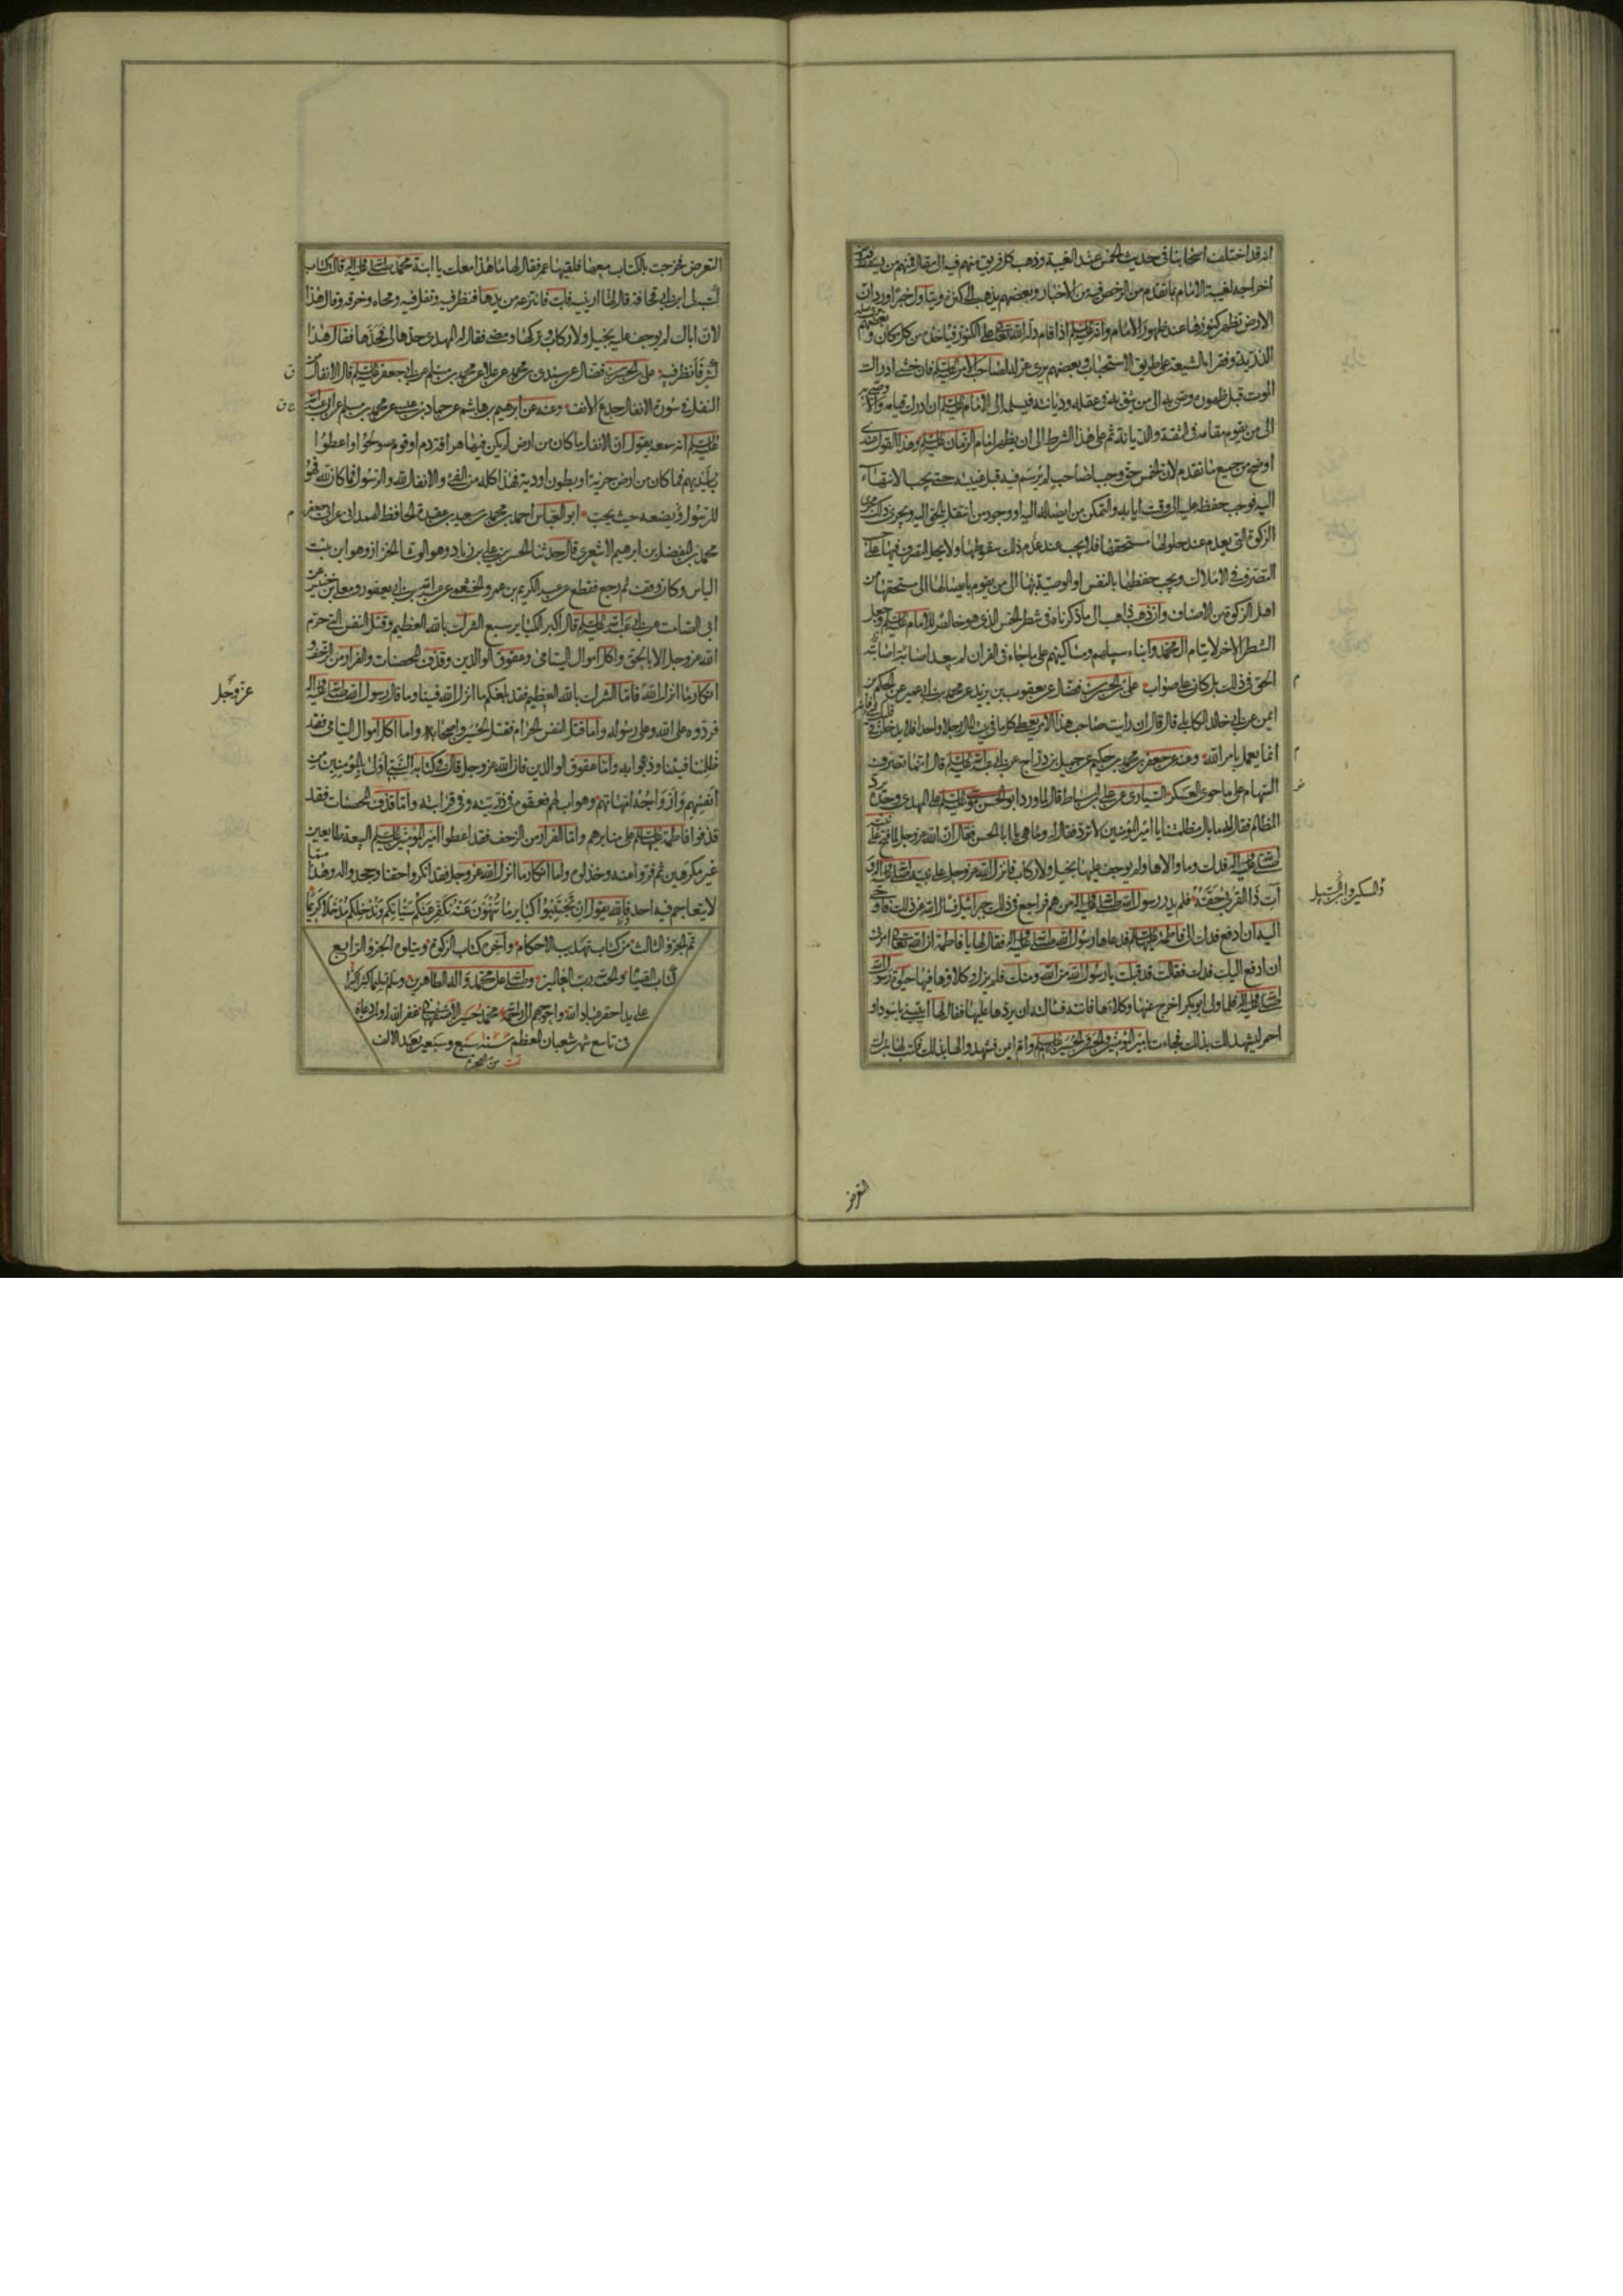 انه قد اختلف اصحابنا فى حديث الخمس عند الغيبة وذهب كل فريق منهم فيه الى مقال فمنهم من يسقط فرض
اخراجه لغيبة الامام بما تقدم من الرخص فيه من الاخبار وبعضهم يذهب الى كنزه ويتاول خبرا ورد ان
الارض تظهر كنوزها عند ظهور الامام وانه عليه السلم اذا قام دله الله تعالى على الكنوز فياخذها من كل مكان وبعضهم يرى صلة
الذرية وفقراء الشيعة على طريق الاستحباب وبعضهم يرى عزله لصاحب الامر عليه السلم فان خشى ادراك
الموت قبل ظهوره وصى به الى من يثق به فى عقله وديانته فيسلمه الى الامام عليه السلم ان ادرك قيامه والا وصى به
الى من يقوم مقامه فى الثقة والديانة ثم على هذا الشرط الى ان يظهر امام الزمان عليه السلم وهذا القول عندى
اوضح من جميع ما تقدم لان الخمس حق وجب لصاحب لم يرسم فيه قبل غيبته حتى يجب الانتهاء
اليه فوجب حفظه عليه الى وقت ايابه والتمكن من ايصاله اليه او وجود من انتقل بالحق اليه ويجرى ذلك مجرى
الزكوة التى يعدم عند حلولها مستحقها فلا يجب عند عدم ذلك سقوطها ولا يحل التصرف فيها على حسب
التصرف فى الاملاك ويجب حفظها بالنفس او الوصية بها الى من يقوم بايصالها الى مستحقها من
اهل الزكوة من الاصناف وان ذهب ذاهب الى ما ذكرناه فى شطر الخمس الذى هو خالص للامام عليه السلم وجعل
الشطر الاخر لايتام ال محمد وابناء سبيلهم ومساكينهم على ما جاء فى القران لم يبعد اصابته
الحق فى ذلك بل كان على صواب على بن الحسن بن فضال عن يعقوب بن يزيد عن محمد بن ابى عمير عن الحكم بن
ايمن عن ابى خالد الكابلى قال قال ان رايت صاحب هذا الامر يعطى كل ما فى بيت المال رجلا واحدا فلا يدخلن فى قلبك شئ فانه
انما يعمل بامر الله وعنه عن جعفر بن محمد بن حكيم عن جميل بن دراج عن ابى عبد الله عليه السلم قال انما تصرف
السهام على ما حوى العسكر السيارى عن على بن اسباط قال لما ورد ابو الحسن موسى عليه السلم على المهدى وجده يرد
المظالم فقال له ما بال مظلمتنا يا امير المؤمنين لا ترد فقال له وما هى يا ابا الحسن فقال ان الله عز وجل لما فتح على نبيه
صلى الله عليه واله فدك وما والاها ولم يوجف عليها بخيل ولا ركاب فانزل الله عز وجل على نبيه صلى الله عليه واله و
آت ذا القربى حقه فلم يدر رسول الله صلى الله عليه واله من هم فراجع فى ذلك جبرائيل فسال الله عن ذلك فاوحى
اليه ان ادفع فدك الى فاطمة عليها السلم فدعاها رسول الله صلى الله عليه واله فقال لها يا فاطمة ان الله تعالى امرنى
ان ادفع اليك فدك فقالت قد قبلت يا رسول الله من الله ومنك فلم يزل وكلاؤها فيها حيوة رسول الله
صلى الله عليه واله فلما ولى ابو بكر اخرج عنها وكلاءها فاتته فسالته ان يردها عليها فقال لها ايتينى باسود او
احمر ليشهد لك بذلك فجاءت بامير المؤمنين والحسن والحسين عليهم السلم وام ايمن فشهدوا لها بذلك فكتب لها بترك
والمسكين وابن السبيل
التعرض
التعرض فخرجت بالكتاب معها فلقيها عمر فقال لها ما هذا معك يا ابنة محمد صلى الله عليه واله قالت كتاب
كتبه لى ابن ابى قحافة قال لها ارينيه فابت فانتزعه من يدها فنظر فيه وتفل فيه ومحاه وخرقه وقال هذا
لان اباك لم يوجف عليه بخيل ولا ركاب وتركها ومضى فقال له المهدى حدها الى فحدها فقال هذا
كثير فانظر فيه على بن الحسن بن فضال عن سندى بن محمد عن علا عن محمد بن مسلم عن ابى جعفر عليه السلم قال الانفال من
النفل فى سورة الانفال جدع الانف وعنه عن ابرهيم بن هاشم عن حماد بن عيسى عن محمد بن مسلم عن ابى عبد الله
عليه السلم انه سمعه يقول ان الانفال ما كان من ارض لم يكن فيها هراقة دم او قوم صولحوا واعطوا
بايديهم فما كان من ارض خربة او بطون اودية فهذا كله من الفئ والانفال لله والرسول فما كان لله فهو
للرسول يضعه حيث يحب ابو العباس احمد بن محمد بن سعيد بن عقدة الحافظ الهمدانى عن ابى جعفر
محمد بن المفضل بن ابرهيم الاشعرى قال حدثنا الحسن بن على بن زياد وهو الوشا الخزاز وهو ابن بنت
الياس وكان وقف ثم رجع فقطع عن عبد الكريم بن عمرو الخثعمى عن عبد الله بن ابى يعفور ومعلى بن خنيس عن
ابى الصامت عن ابى عبد الله عليه السلم قال اكبر الكبائر سبع الشرك بالله العظيم وقتل النفس التى حرم
الله عز وجل الا بالحق واكل اموال اليتامى وعقوق الوالدين وقذف المحصنات والفرار من الزحف و
انكار ما انزل الله فاما الشرك بالله العظيم فقد بلغكم ما انزل الله فينا وما قال رسول الله صلى الله عليه واله
فردوه على الله وعلى رسوله واما قتل النفس الحرام فقتل الحسين واصحابه واما اكل اموال اليتامى فقد
ظلمنا فيئنا وذهبوا به واما عقوق الوالدين فان الله عز وجل قال فى كتابه النبى اولى بالمؤمنين من
انفسهم وازواجه امهاتهم وهو اب لهم فعقوه فى ذريته وفى قرابته واما قذف المحصنات فقد
قذفوا فاطمة عليها السلم على منابرهم واما الفرار من الزحف فقد اعطوا امير المؤمنين عليه السلم البيعة طايعين
غير مكرهين ثم فروا عنه وخذلوه واما انكار ما انزل الله عز وجل فقد انكروا حقنا وجحدوا له وهذا مما
لا يتعاجم فيه احد فالله يقول ان تجتنبوا كبائر ما تنهون عنه نكفر عنكم سيئاتكم وندخلكم مدخلا كريما
تم الجزو الثالث من كتاب تهذيب الاحكام واخر كتاب الزكوة ويتلوه الجزو الرابع
كتاب الصيام والحمد لله رب العالمين وصلى الله على محمد واله الطاهرين وسلم تسليما كثيرا كثيرا
على يد احقر عباد الله واحوجهم الى رحمة محمد حسين الاصفهانى غفر الله له ولوالديه
فى تاسع شهر شعبان المعظم سنه سبع وسبعين بعد الالف
من الهجرة تمت
عز وجل